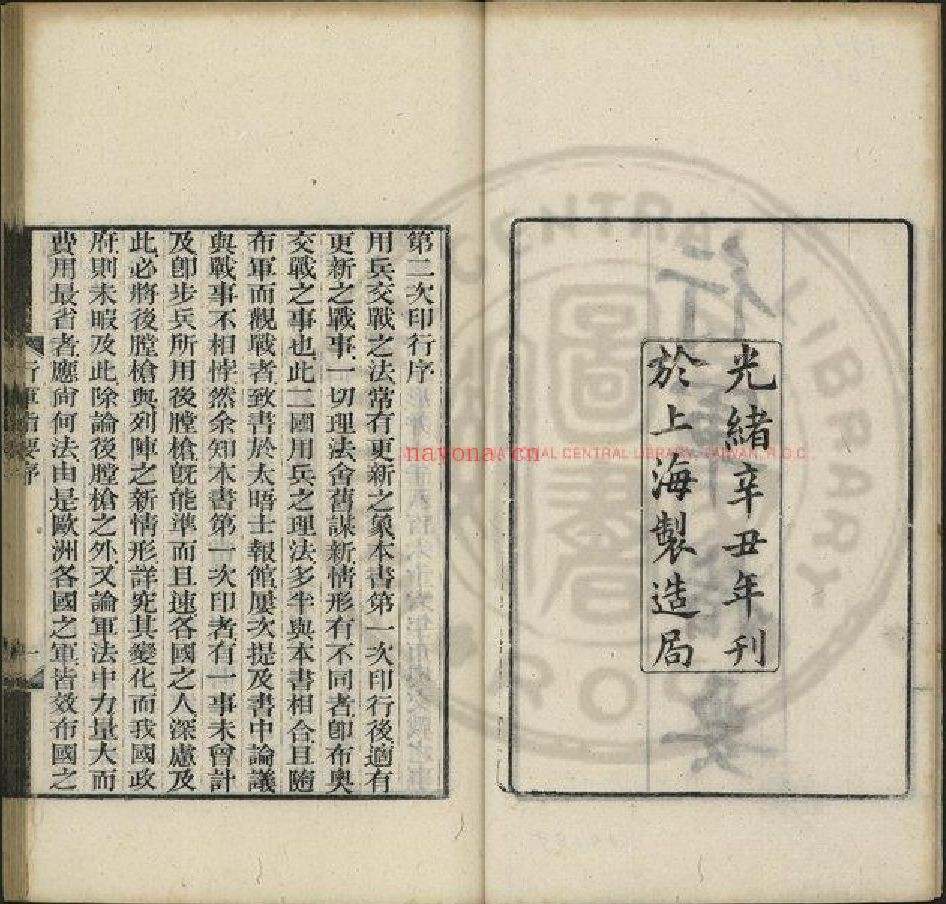 光緒辛丑年刊
於上海製造局
第二次印行序
用兵交戰之法常有更新之象本書第一次印行後適有
更新之戰事一切理法舍舊謀新情形有不同者卽布奥
交戰之事也此二國用兵之理法多半與本書相合且隨
布軍而觀戰者致書於太晤士報館屢次提及書中論議
與戰事不相悖然余知本書第一次印者有一事未曾計
及卽步兵所用後膛槍旣能準而且速各國之人深慮及
此必將後膛槍與列陣之新情形詳究其變化而我國政
府則未暇及此除論後膛槍之外又論軍法中力量大而
費用最省者應尙何法由是歐洲各國之軍皆效布國之
行軍指要序
一
nayona.cn
NATIONAL CENTRAL LIBRARY, TAIWAN, R.O.C